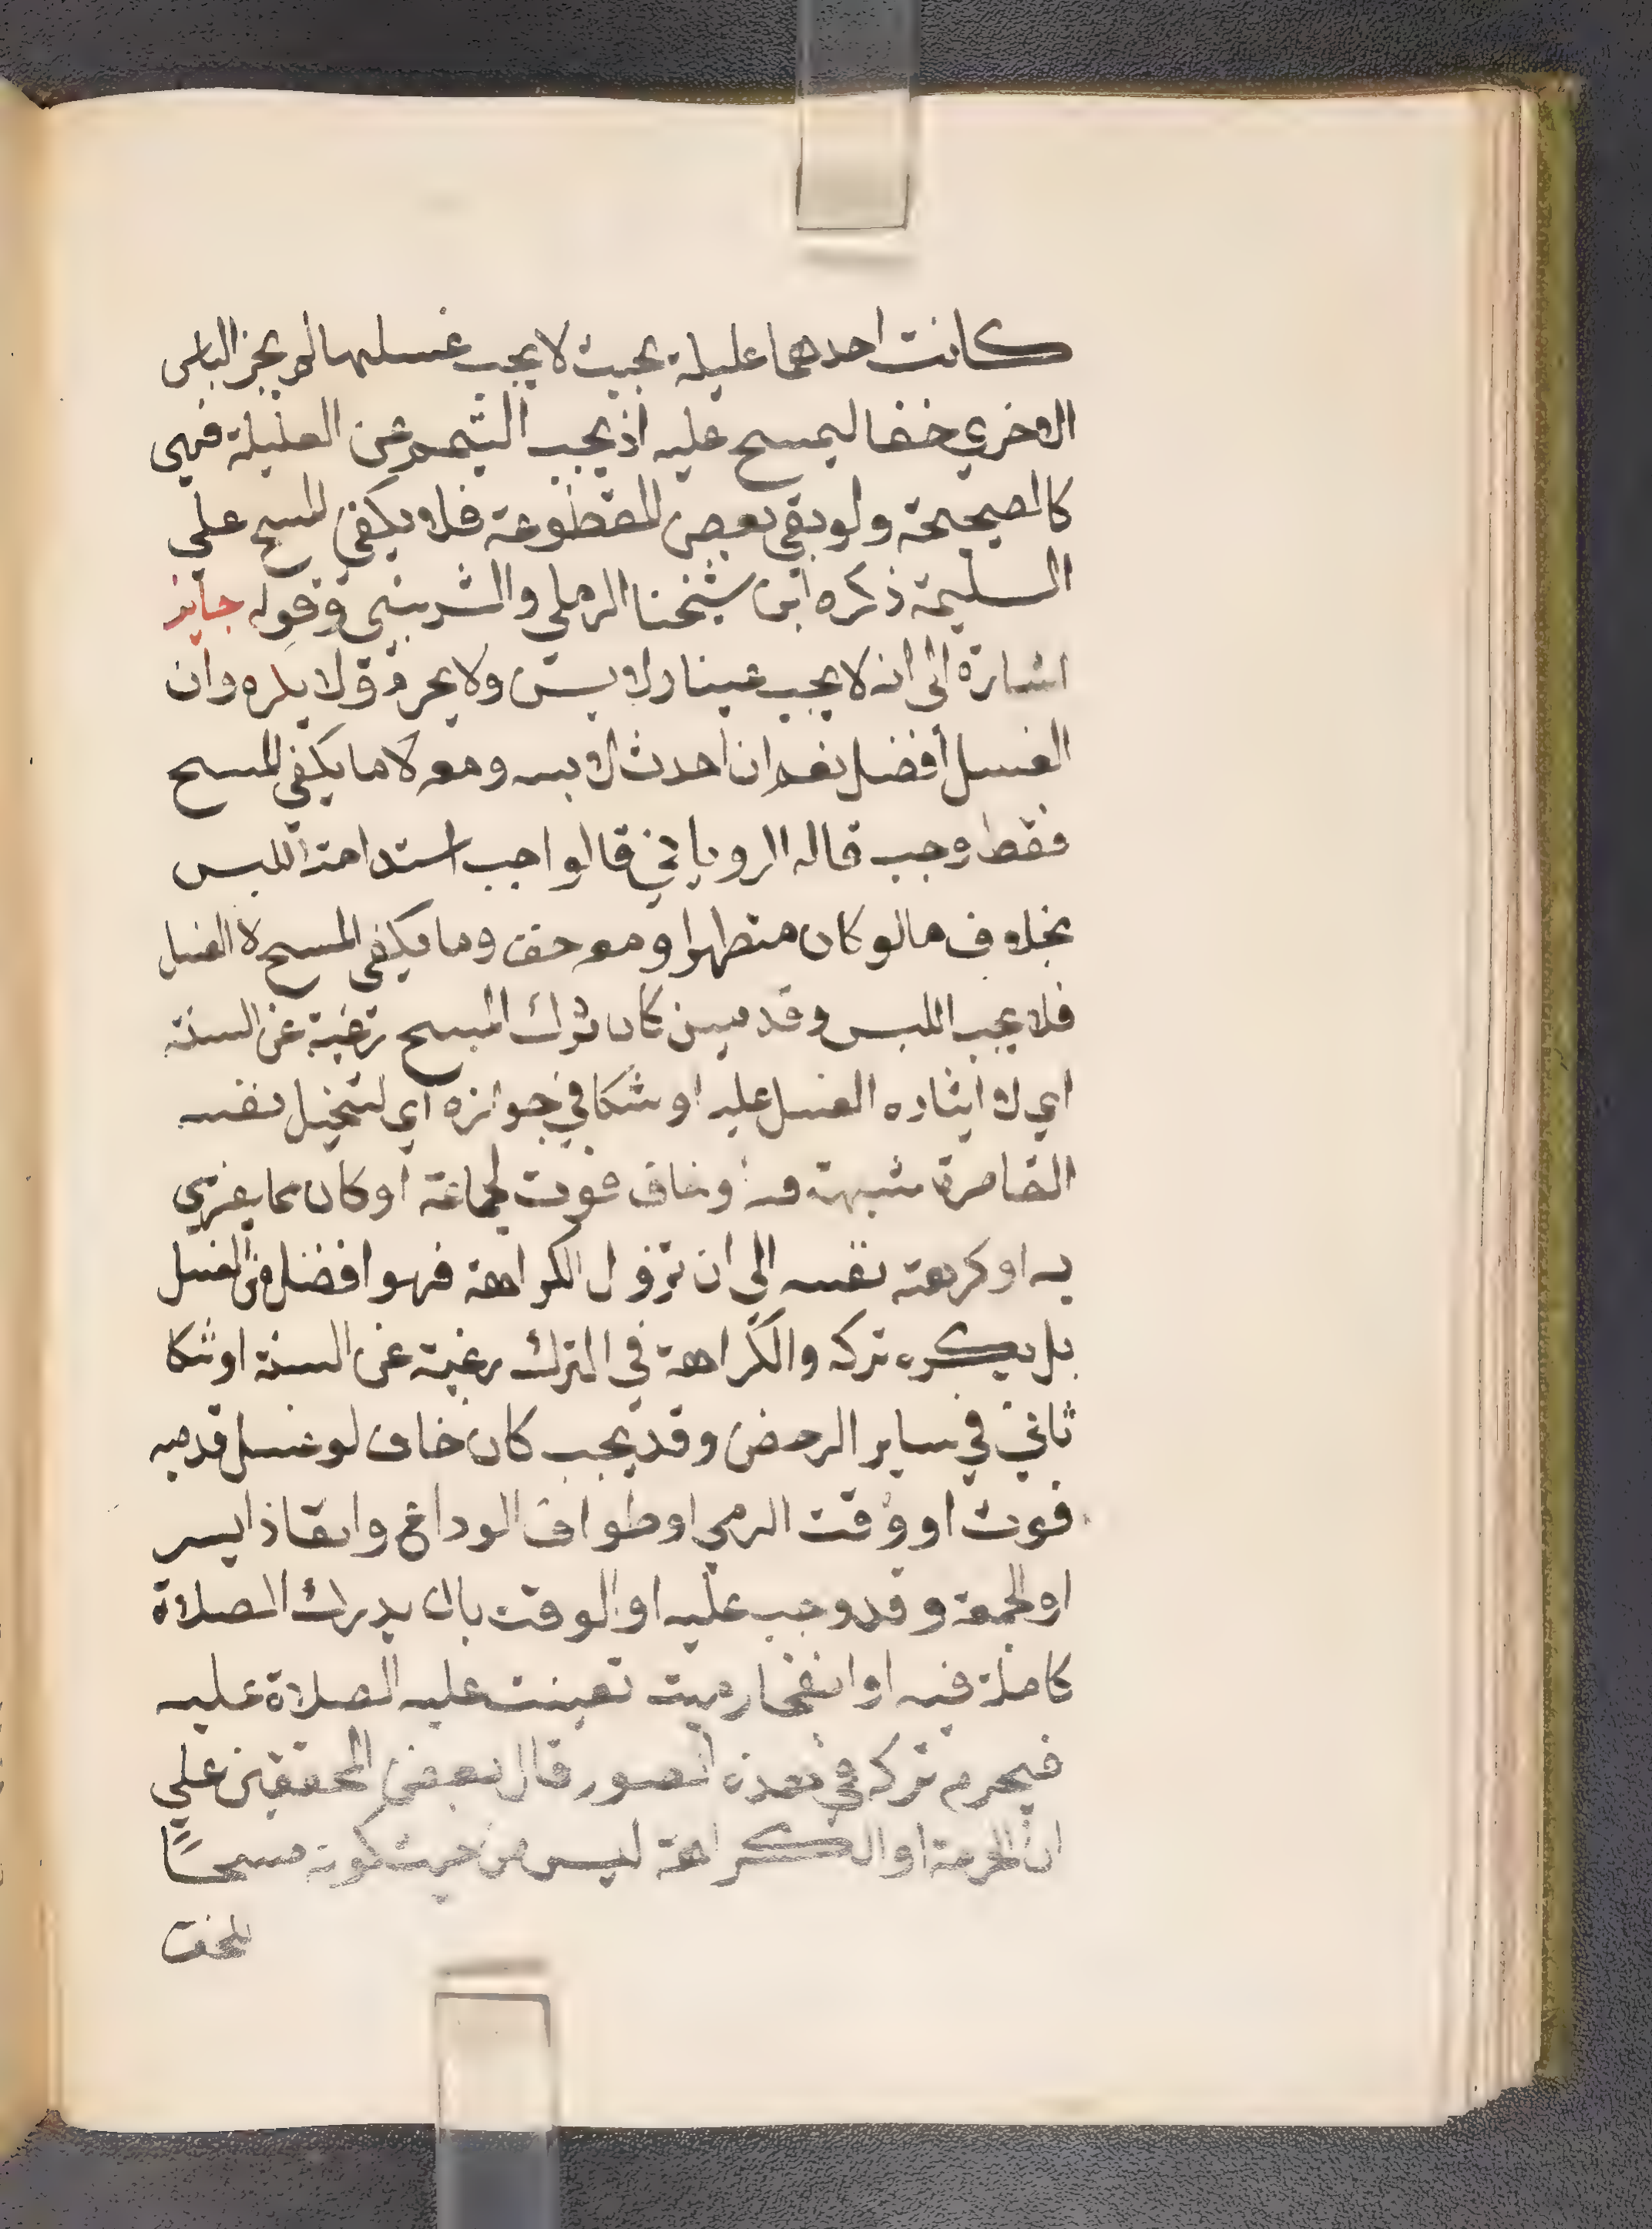 كانت احدهما عليلة بحيث لا يجب غسلها لم يجز الباس
الاخري خفا ليمسح عليه اذ يجب التيمم عن العليلة فهي
كالصحيحة ولو بقي بعض المقطوعة فلا يكفي المسح علي
السليمة ذكره ابن شيخنا الرملي والشربيني وقوله جايز
اشارة الي انه لا يجب عينا ولا يسن ولا يحرم ولا يكره وان
الغسل افضل نعم ان احدث لابسه ومعه ما يكفي المسح
فقط وجب قاله الروياني قالواجب استدامة اللبس
بخلاف مالو كان متطهرا ومعه خف وما يكفي المسح لا الغسل
فلا يجب اللبس وقد يسن كان ترك المسح رغبة عن السنة
اي لا ايثاره الغسل عليه او شكا في جوازه اي لتخيل نفسه
القاصرة شبهة فيه او خاف فوت الجماعة او كان مما يقتدي
به او كرهته نفسه الي ان تزول الكراهة فهو افضل من الغسل
بل يكره تركه والكراهة في الترك رغبة عن السنة او شكا
تاتي في ساير الرخص وقد يجب كان خاف لو غسل قدميه
فوت او وقت الرمي او طواف الوداع وانقاذ اسير
او الجمعة وقد وجب عليه او الوقت بان يدرك الصلاة
كاملة فيه او انفجار ميت تعينت عليه الصلاة عليه
فيحرم تركه في هذه الصور قال بعض المحققين علي
ان الحرمة او الكراهة ليس من حيث كونه مسحًا
للخف